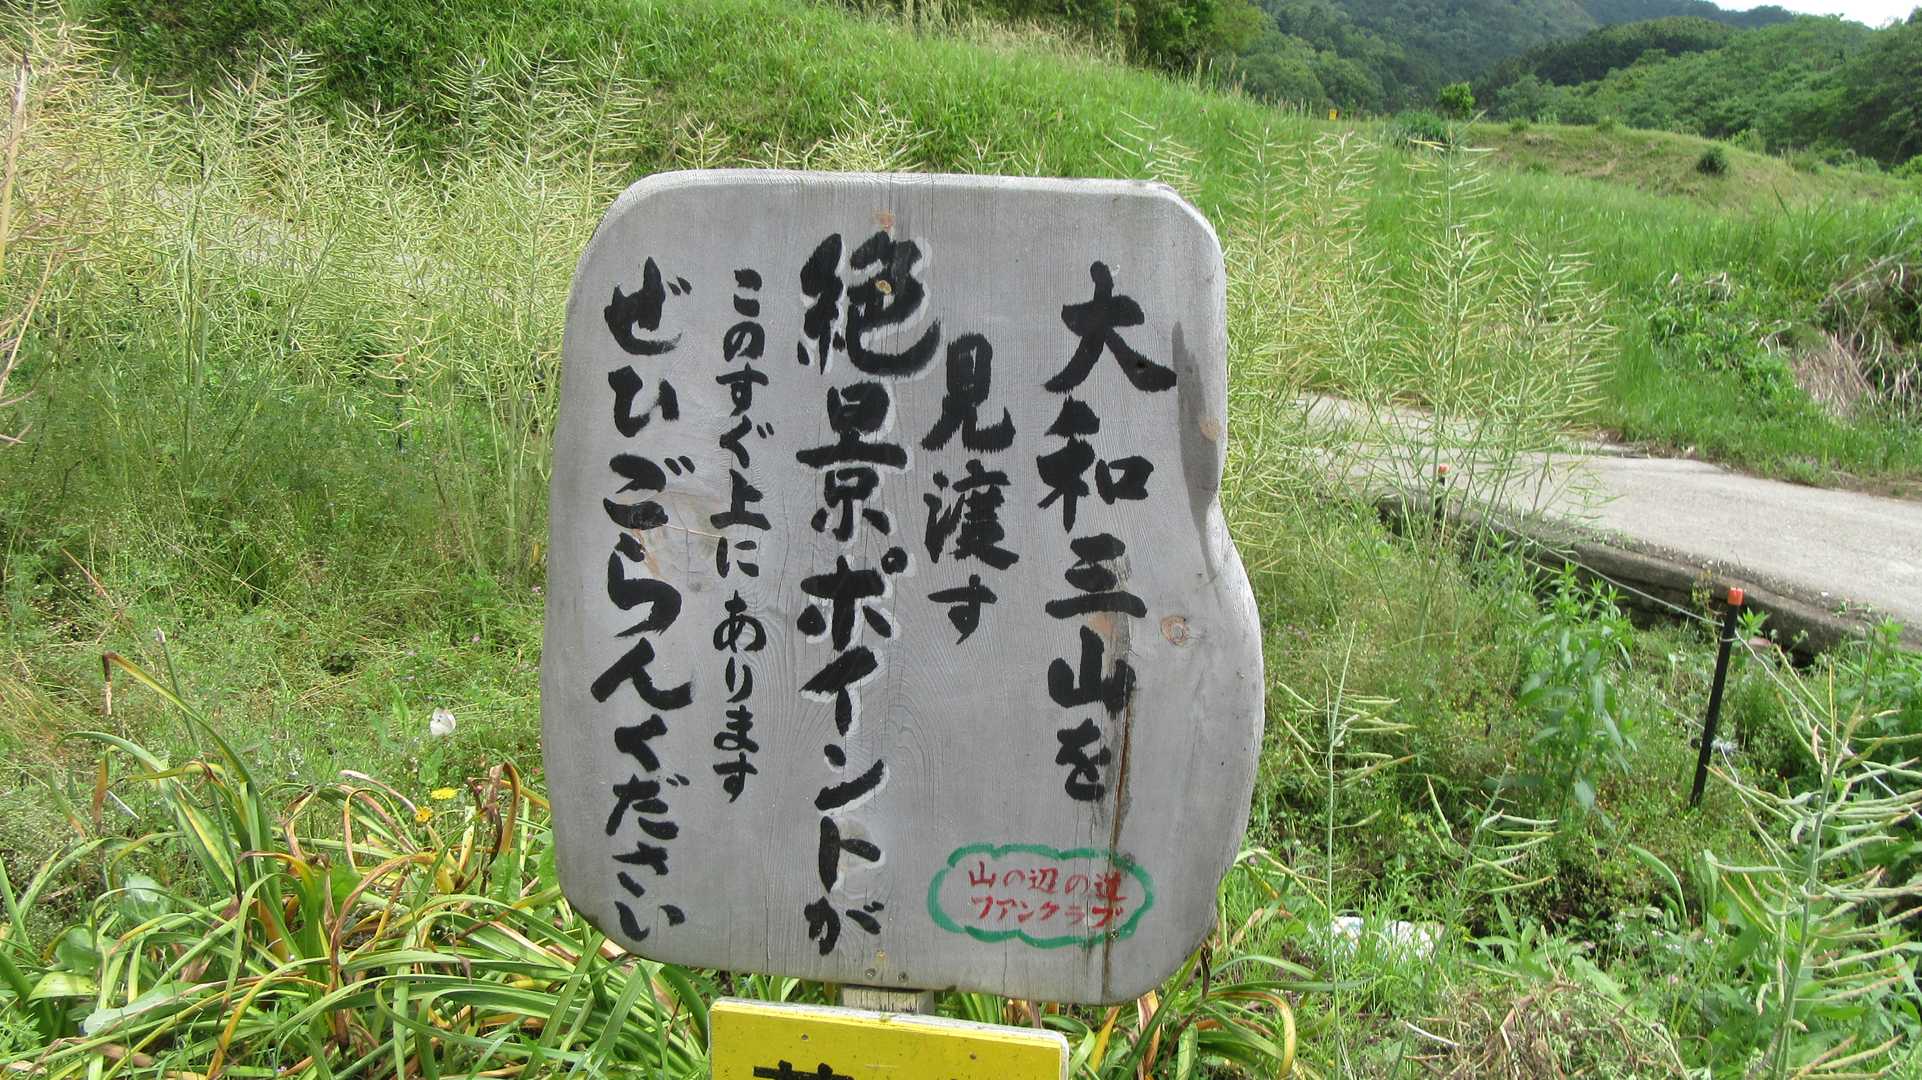 大和三山を
見渡す
絶景ポイントが
このすぐ上にあります
ぜひごらんください
山の辺の道
ファンクラブ